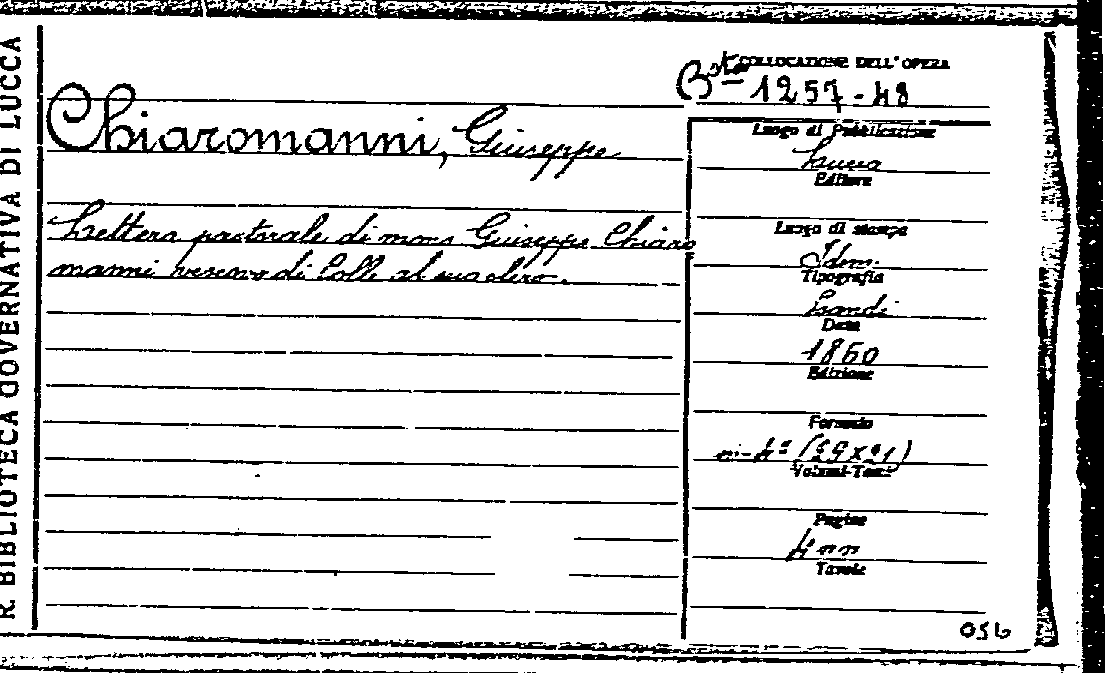 R. BIBLIOTECA GOVERNATIVA DI LUCCA
COLLOCAZIONE DELL'OPERA
Bsta 1257-48
Chiaromanni, Giuseppe
Lettera pastorale di mons Giuseppe Chiaro
manni vescovo di Colle al suo clero.
Luogo di Pubblicazione
Lucca
Editore
Luogo di stampa
Idem.
Tipografia
Landi
Data
1860
Edizione
Formato
in-4º (29x21)
Volumi-Tomi
Pagine
4 nn
Tavole
056